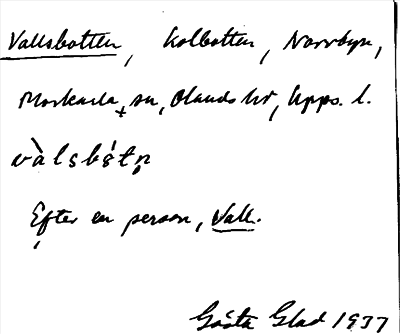 Vallsbotten, Kolbotten, Norrbyn,
Morkarla sn, Olands hd, Upps. l.
vàlsbótn̥
Efter en person, Vall.
Gösta Glad 1937